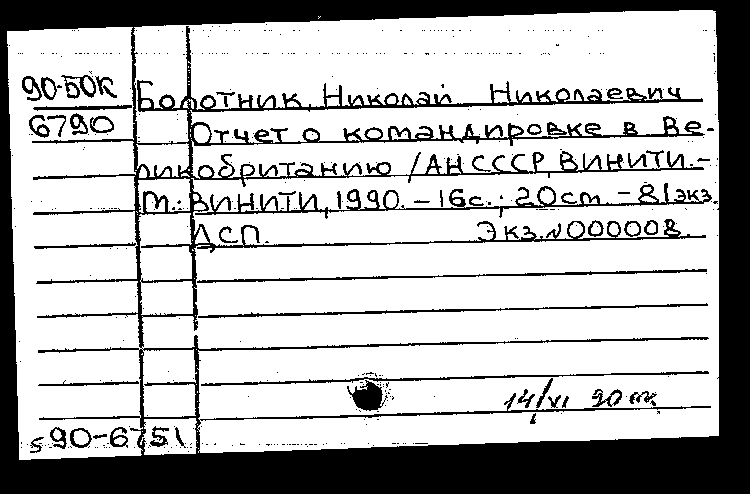 90-БОК Болотник, Николай Николаевич
6790 Отчет о командировке в Ве-
ликобританию / АН СССР, ВИНИТИ. -
М.: ВИНИТИ, 1990. - 16с.; 20см. - 81экз.
ДСП. Экз.N000008.
14/XI 90
s90-6751